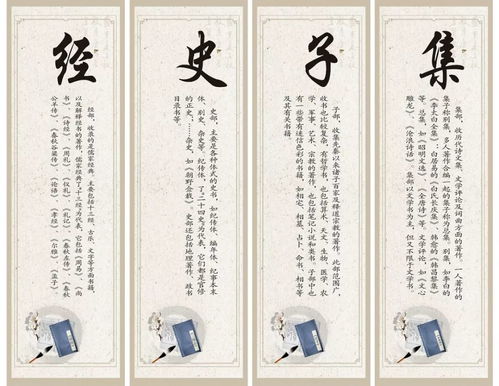 经
经部，收录的是儒家经典，主要包括十三经、古乐、文字等方面书籍，
以及解释经书的著作。儒家经典了“十三经”为代表，它包括《周易》、《尚
书》、《诗经》、《周礼》、《仪礼》、《礼记》、《春秋左传》、《春秋
公羊传》、《春秋谷梁传》、《论语》、《孝经》、《尔雅》、《孟子》。
史
史部，主要是各种体式的史书，如纪传体、编年体、纪事本末
体、别史、杂史等。纪传体，了“二十四史”为代表，它们都是官修
的正史。……杂史，如《朝野佥载》。史部还包括地理著作、政书
目录书等。
子
子部，收录先秦以来诸子百家及释道宗教的著作，此部范围广，
收书也比较复杂。有哲学书，也包括算术、天文、生物、医学、农
学、军事、艺术、宗教的著作，也包括笔记小说和类书。子部中也
有一些带有迷信色彩的书籍，如相宅、相墓、占卜、命书、相书等
及其有关书籍。
集
集部，收历代诗文集、文学评论及词曲方面的著作。一人著作的
集子称别集，多人著作合编一起的集子称为总集。别集，如李白的
《李太白全集》、白居易的《白氏长庆集》、韩愈的《韩昌黎集》
等。总集，如《昭明文选》、《全唐诗》等。文学评论，如《文心
雕龙》、《沧浪诗话》。集部以文学书为主，但又不限于文学书。